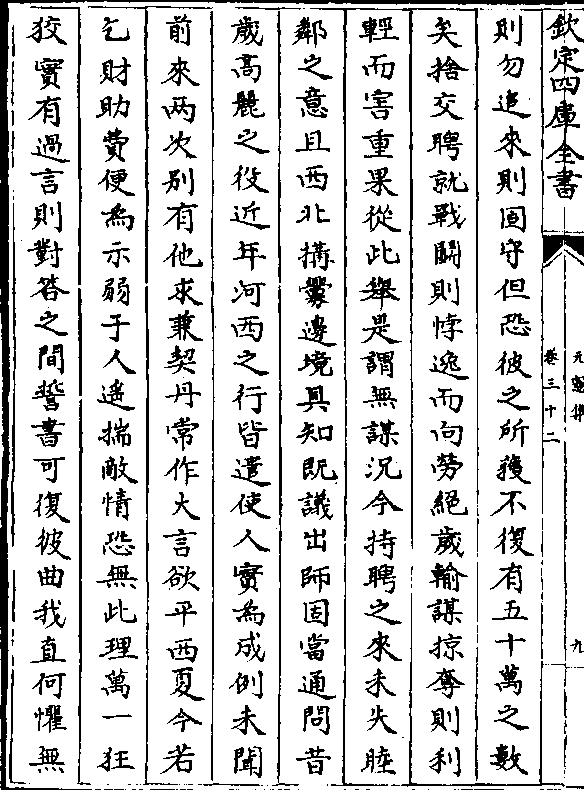 欽定四庫全書
元憲集
卷三十二
九
則勿追來則固守但恐彼之所獲不復有五十萬之數
矣捨交聘就戰鬬則悖逸而向勞絕歲輸謀掠奪則利
輕而害重果從此舉是謂無謀況今持聘之來未失睦
鄰之意且西北搆釁邊境具知既議出師固當通問昔
歲高麗之役近年河西之行皆遣使人實為成例未聞
前來两次别有他求兼契丹常作大言欲平西夏今若
乞財助費便為示弱于人遥揣敵情恐無此理萬一狂
狡實有過言則對答之間誓書可復彼曲我直何懼無